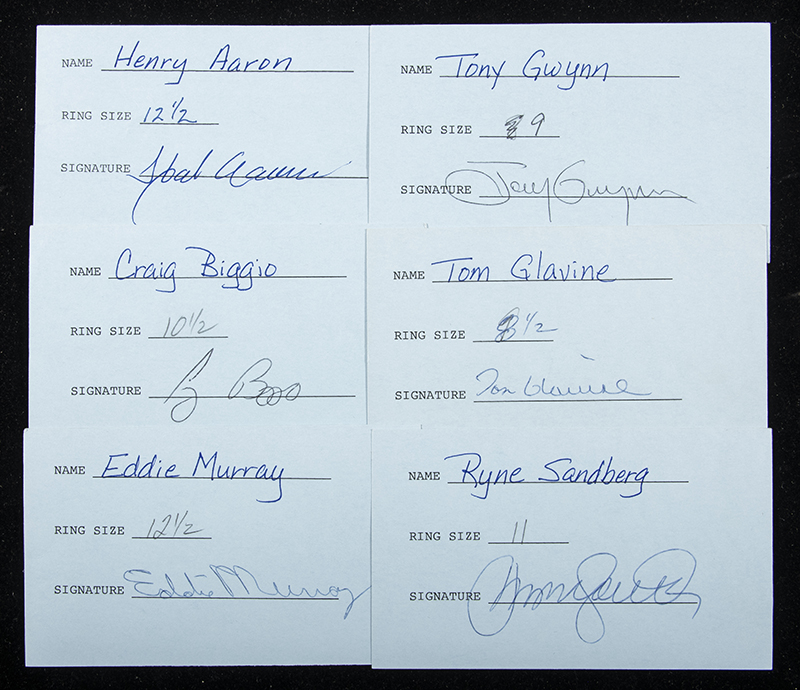 NAME Henry Aaron
RING SIZE 12 1/2
SIGNATURE
NAME Tony Gwynn
RING SIZE 9
SIGNATURE Tony Gwynn
NAME Craig Biggio
RING SIZE 10 1/2
SIGNATURE
NAME Tom Glavine
RING SIZE 1/2
SIGNATURE Tom Glavine
NAME Eddie Murray
RING SIZE 12 1/2
SIGNATURE Eddie Murray
NAME Ryne Sandberg
RING SIZE 11
SIGNATURE